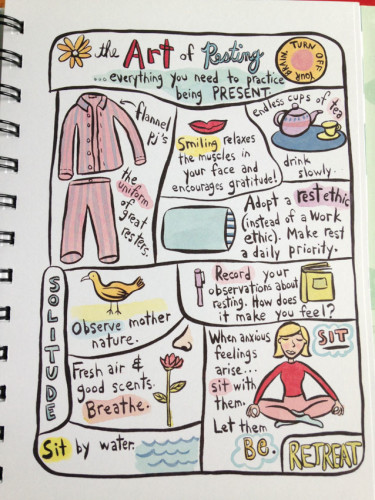 the Art of Resting
...everything you need to practice
being PRESENT.
TURN OFF YOUR BRAIN
flannel
pj's
the
uniform
of great
resters.
Smiling relaxes
the muscles in
your face and
encourages gratitude!
endless cups of tea
drink
slowly.
Adopt a rest ethic
(instead of a work
ethic). Make rest
a daily priority.
SOLITUDE
Observe mother
nature.
Record your
observations about
resting. How does
it make you feel?
Fresh air &
good scents.
Breathe.
When anxious
feelings
arise...
sit with
them.
Let them
BE.
SIT
Sit by water.
RETREAT